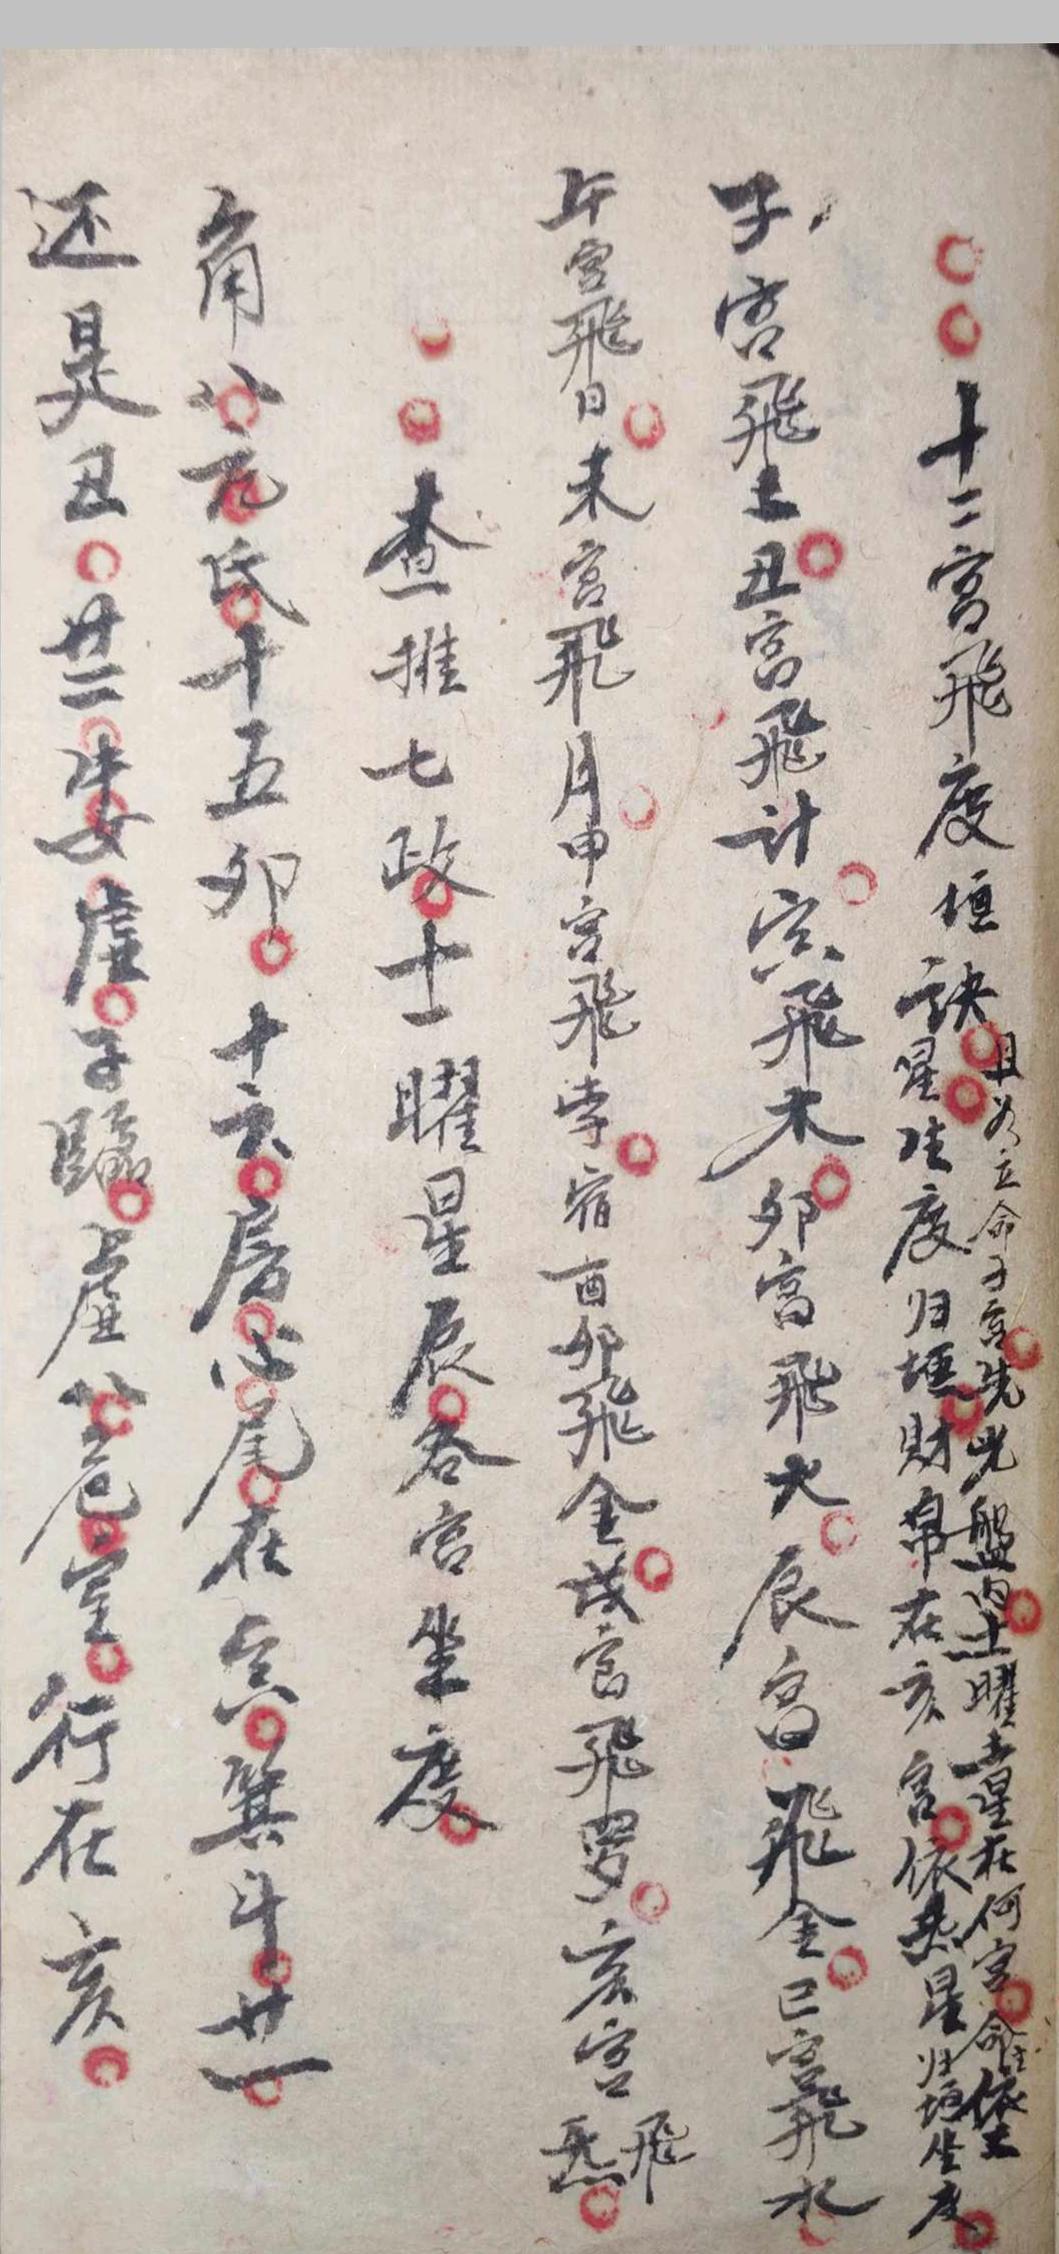 十二宫飛度垣訣
且如立命子宫先光盤内土曜土星在何宫命主依土
星坐度归垣財帛在亥宫依炁星归垣坐度
子宫飛土丑宫飛计寅飛木卯宫飛火辰宫飛金巳宫飛水
午宫飛日未宫飛月申宫飛孛宿酉卯飛金戌宫飛罗亥宫飛炁
查推七政十一曜星辰吞宫坐度
角八亢氐十五卯十六房心尾在寅箕斗廿一
还是丑廿二牛女虚子臨上虚八危室行在亥